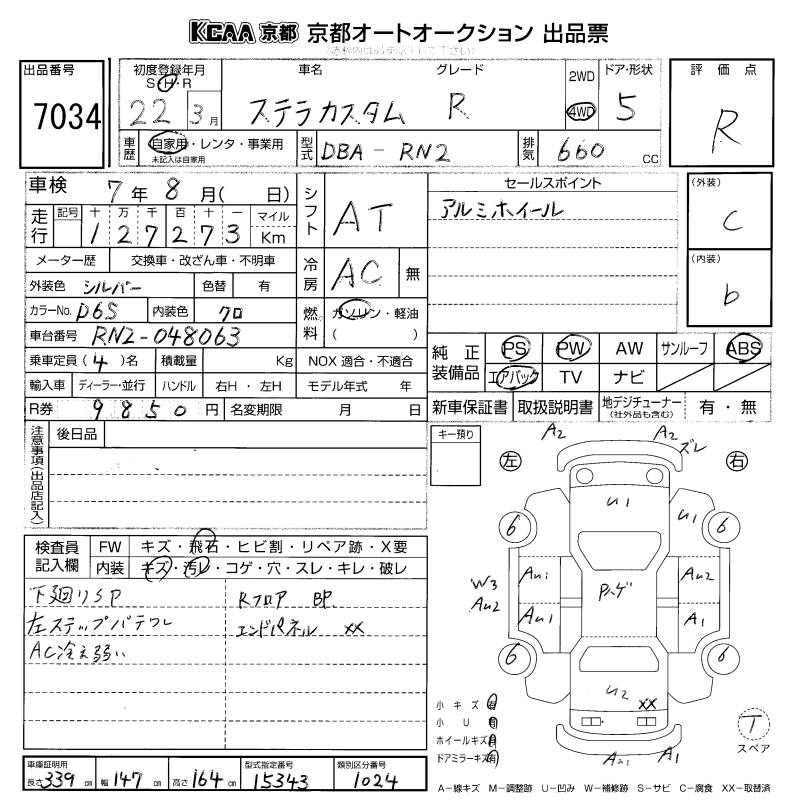 KCAA 京都 京都オートオークション 出品票
出品番号
7034
初度登録年月
S・H・R
22 3月
車名
ステラカスタム
グレード
R
2WD
4WD
ドア・形状
5
評価点
R
車歴
自家用・レンタ・事業用
未記入は自家用
型式
DBA-RN2
排気
660 cc
車検 7年 8月( 日)
走行
記号 十 万 千 百 十 一
127273
マイル
Km
シフト
AT
セールスポイント
アルミホイール
(外装)
C
(内装)
b
メーター歴
交換車・改ざん車・不明車
冷房
AC 無
外装色 シルバー 色替 有
カラーNo. D6S 内装色 クロ
燃料
ガソリン・軽油
( )
車台番号 RN2-048063
乗車定員(4)名 積載量 Kg NOX 適合・不適合
輸入車 ディーラー・並行 ハンドル 右H・左H モデル年式 年
R券 9850円 名変期限 月 日
純正装備品
PS PW AW サンルーフ ABS
エアバック TV ナビ
新車保証書 取扱説明書 地デジチューナー
(社外品も含む)
有・無
注意事項(出品店記入)
後日品
キー預り
左
右
A2
A2
ズレ
検査員記入欄
FW キズ・飛石・ヒビ割・リペア跡・X要
内装 キズ・汚レ・コゲ・穴・スレ・キレ・破レ
下廻りSP
左ステップパテワレ
AC冷え弱い
Rフロア BP.
エンドパネル XX
U1
U1
6
6
AU1
AU2
W3
AU2
Pハゲ
AU1
A1
6
6
U2
XX
AU1
A1
小キズ 有
小U 有
ホイールキズ 有
ドアミラーキズ 有
T
スペア
車庫証明用
長さ 339cm 幅 147cm 高さ 164cm
型式指定番号
15343
類別区分番号
1024
A-線キズ M-調整跡 U-凹み W-補修跡 S-サビ C-腐食 XX-取替済